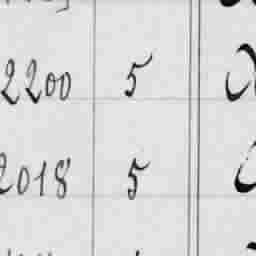 2200 5
2018 5